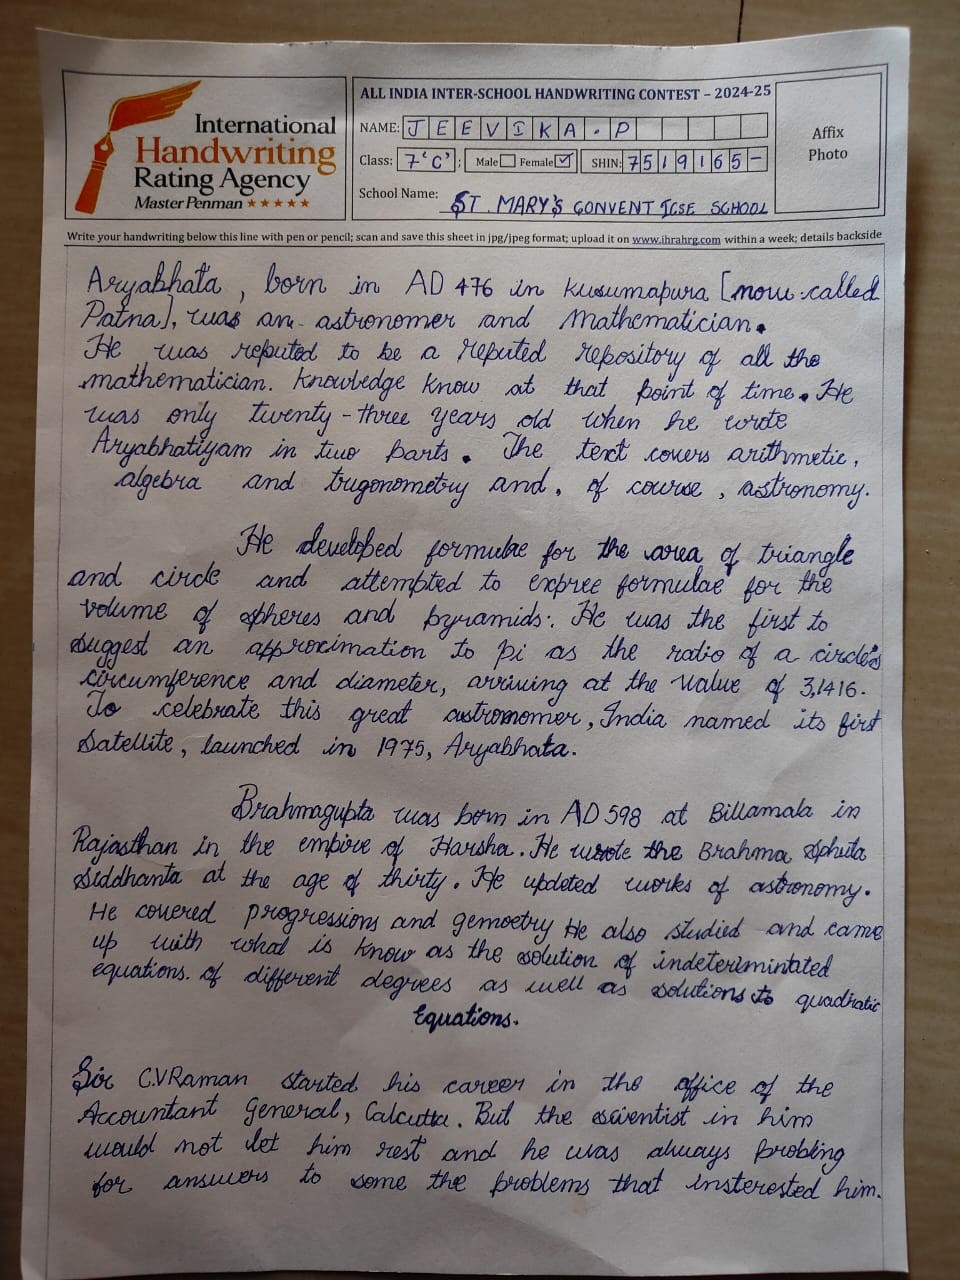 International
Handwriting
Rating Agency
Master Penman ★★★★★
ALL INDIA INTER-SCHOOL HANDWRITING CONTEST – 2024-25
NAME: JEEVIKA.P
Class: 7'C' ; Male Female ✓ SHIN: 7519165-
School Name: ST. MARY'S CONVENT ICSE SCHOOL
Affix
Photo
Write your handwriting below this line with pen or pencil; scan and save this sheet in jpg/jpeg format; upload it on www.ihrahrg.com within a week; details backside
Aryabhata , born in AD 476 in Kusumapura [now called
Patna], was an astronomer and Mathematician.
He was reputed to be a reputed repository of all the
mathematician. Knowledge know at that point of time. He
was only twenty-three years old when he wrote
Aryabhatiyam in two parts. The text covers arithmetic,
algebra and trugonometry and, of course, astronomy.
He developed formulae for the area of triangle
and circle and attempted to expree formulae for the
volume of spheres and pyramids. He was the first to
suggest an approximation to pi as the ratio of a circle's
circumference and diameter, arriving at the value of 3,1416.
To celebrate this great astronomer, India named its first
Satellite, launched in 1975, Aryabhata.
Brahmagupta was born in AD 598 at Billamala in
Rajasthan in the empire of Harsha. He wrote the Brahma Sphuta
Siddhanta at the age of thirty. He updated works of astronomy.
He covered progressions and gemoetry He also studied and came
up with what is know as the solution of indeterimintated
equations. of different degrees as well as solutions to quadratic
Equations.
Sir C.V Raman started his career in the office of the
Accountant General, Calcutta. But the scientist in him
would not let him rest and he was always probling
for answers to some the problems that insterested him.